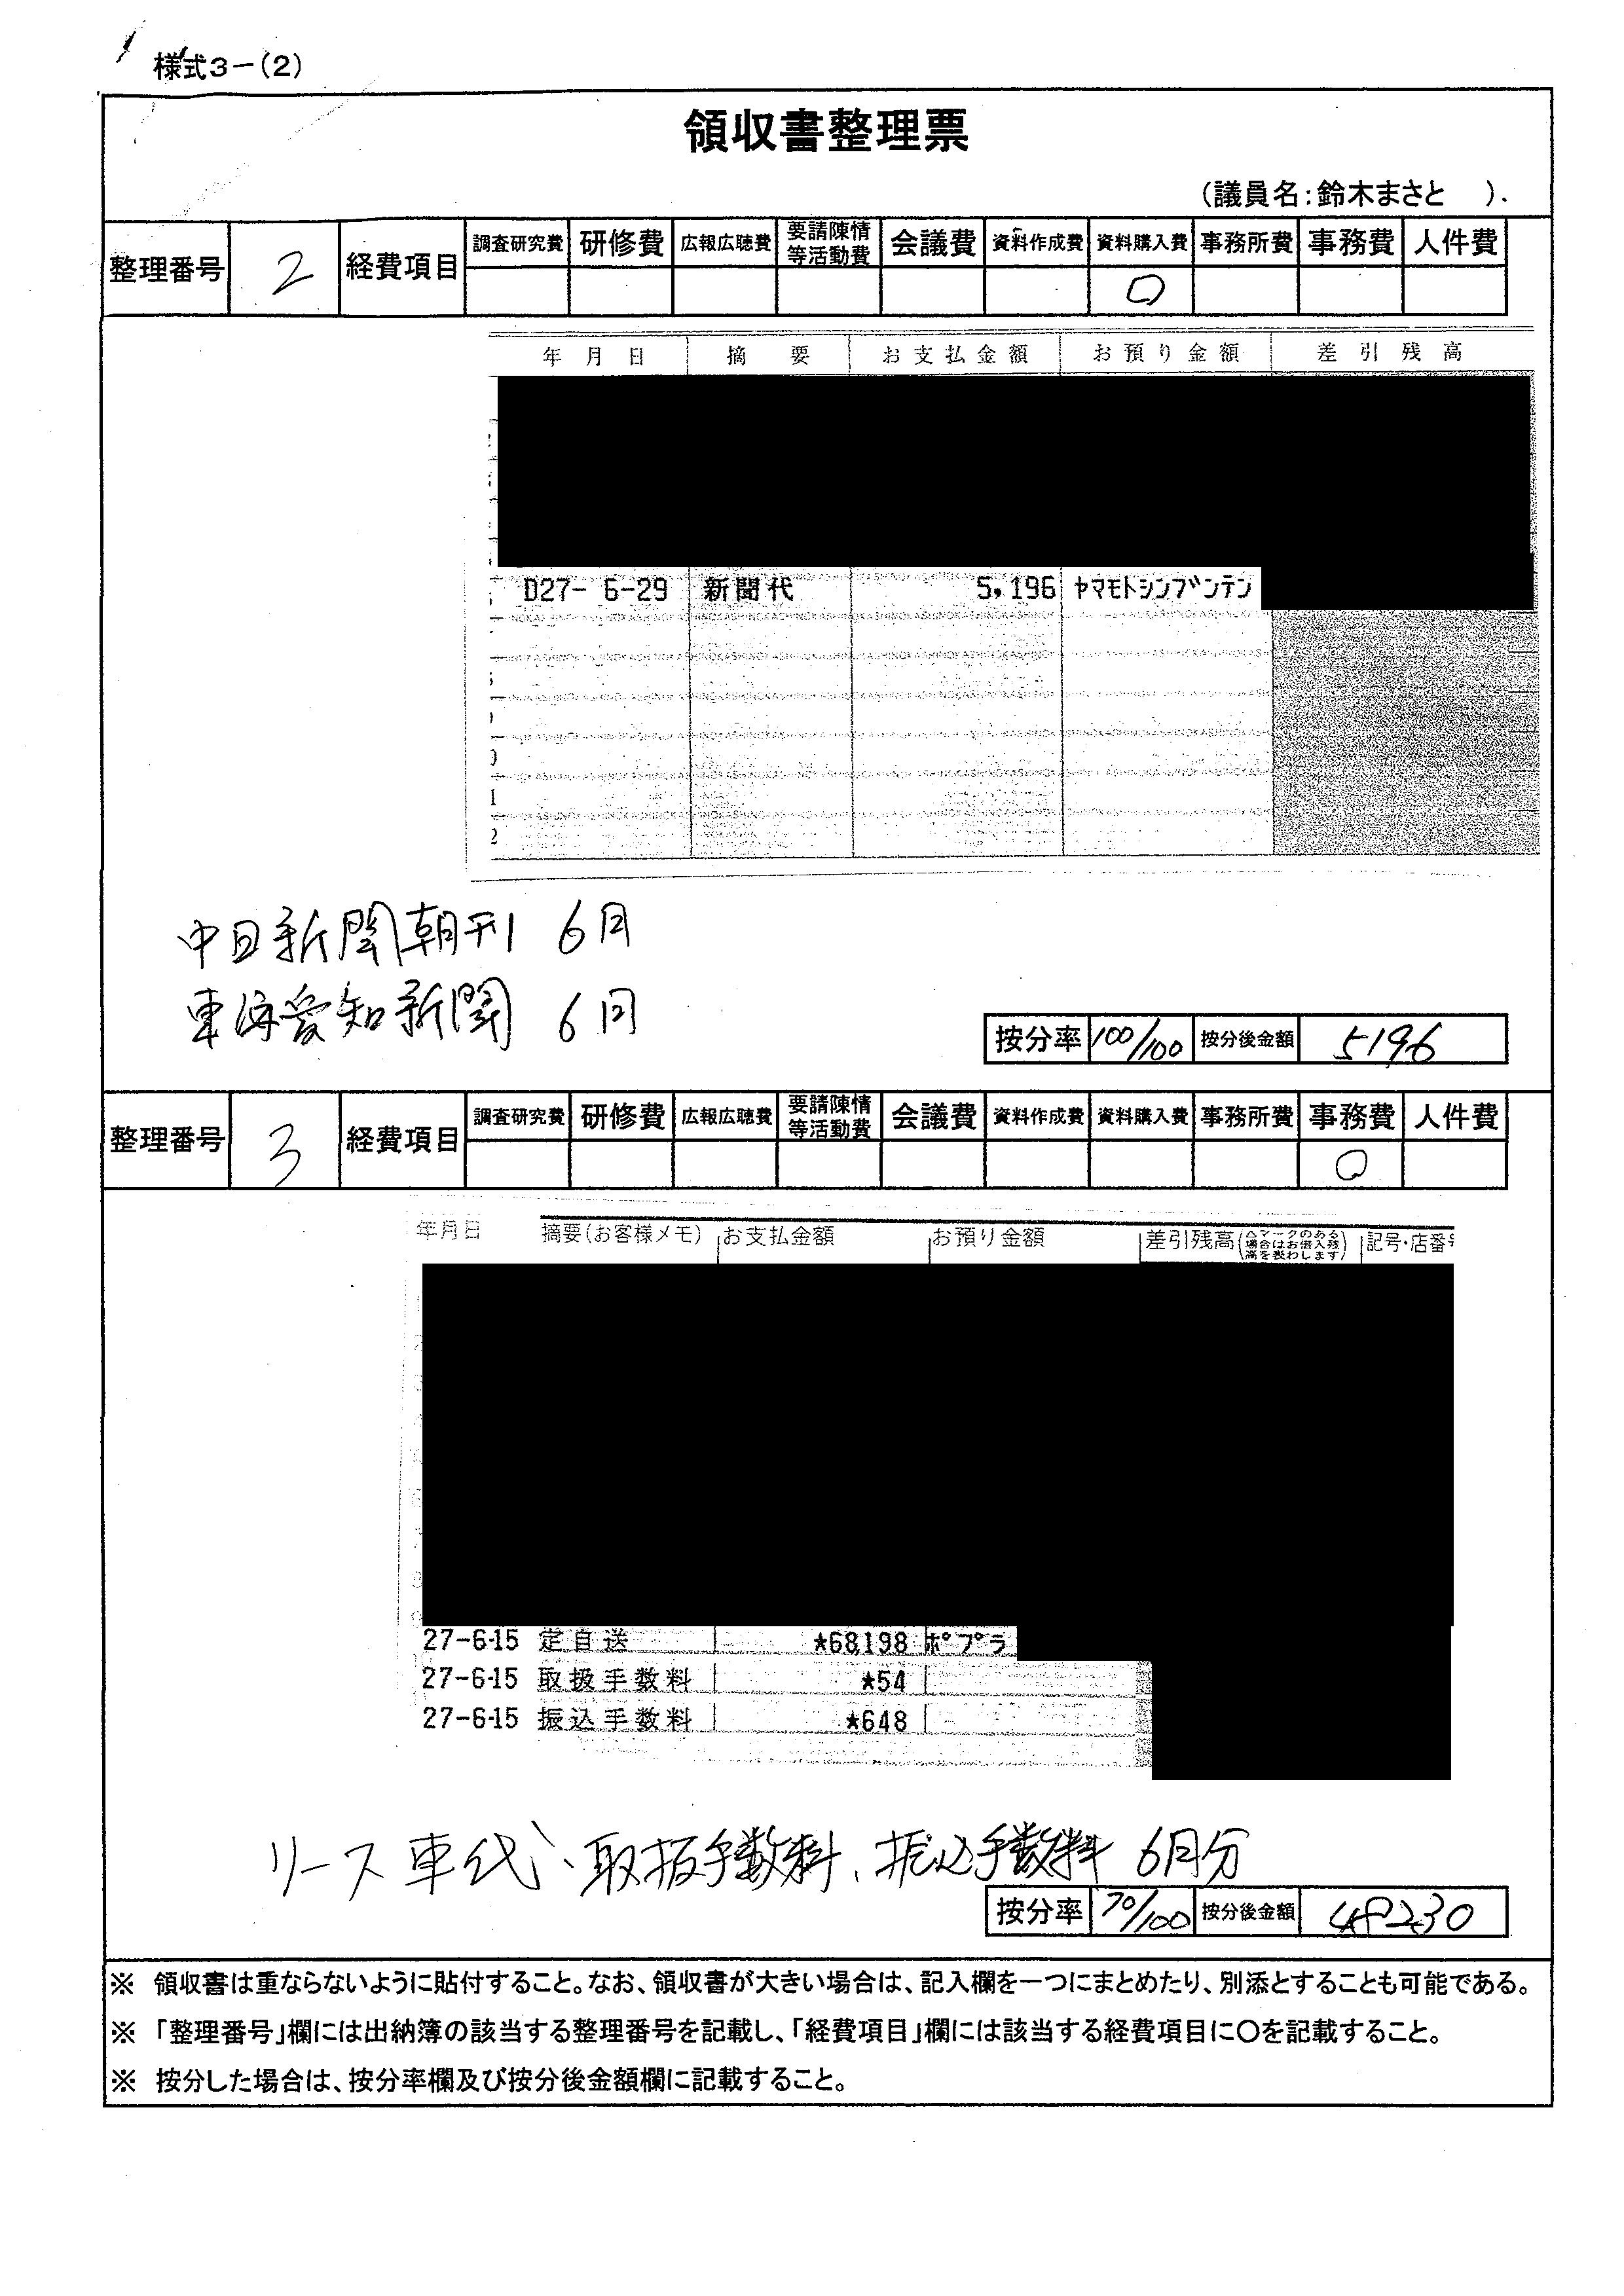 様式3－(2)
領収書整理票
(議員名:鈴木まさと　)
整理番号 2 経費項目 調査研究費 研修費 広報広聴費 要請陳情等活動費 会議費 資料作成費 資料購入費 事務所費 事務費 人件費
○
年月日 摘要 お支払金額 お預り金額 差引残高
D27- 6-29 新聞代 5,196 ヤマモトシンブンテン
中日新聞朝刊 6月
東海愛知新聞 6月
按分率 100/100 按分後金額 5196
整理番号 3 経費項目 調査研究費 研修費 広報広聴費 要請陳情等活動費 会議費 資料作成費 資料購入費 事務所費 事務費 人件費
○
年月日 摘要(お客様メモ) お支払金額 お預り金額 差引残高(△マークのある場合はお借入残高を表わします) 記号・店番
27-6-15 定自送 ★68,198 ポプラ
27-6-15 取扱手数料 ★54
27-6-15 振込手数料 ★648
リース車代、取扱手数料、振込手数料 6月分
按分率 70/100 按分後金額 48230
※ 領収書は重ならないように貼付すること。なお、領収書が大きい場合は、記入欄を一つにまとめたり、別添とすることも可能である。
※ 「整理番号」欄には出納簿の該当する整理番号を記載し、「経費項目」欄には該当する経費項目に○を記載すること。
※ 按分した場合は、按分率欄及び按分後金額欄に記載すること。